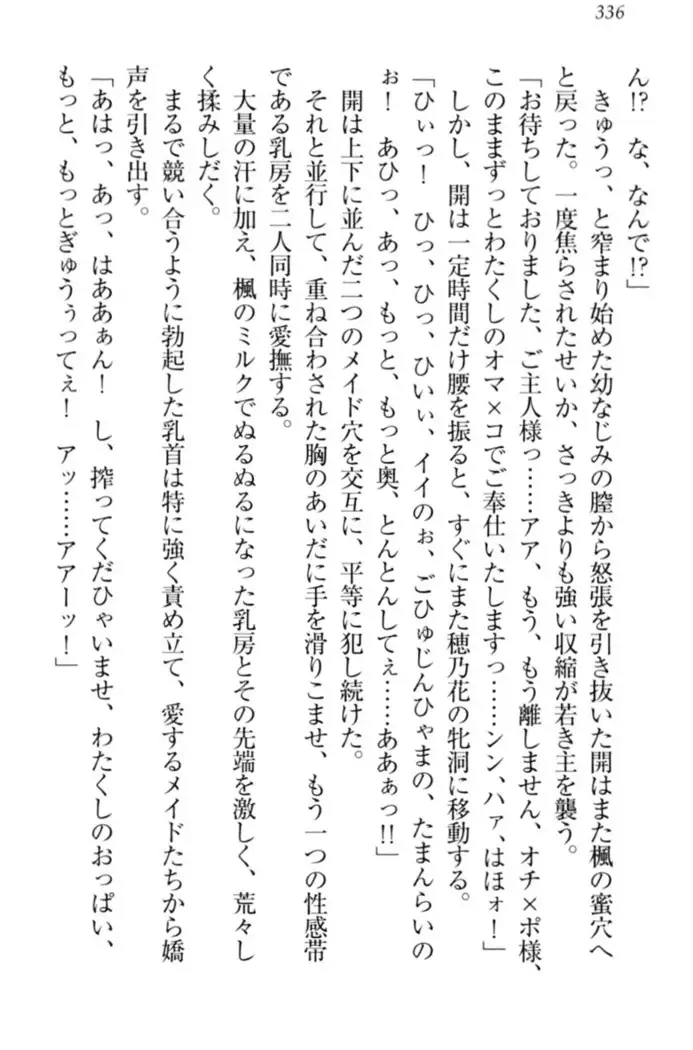 336
ん!? な、なんで!?」
きゅうっ、と窄まり始めた幼なじみの膣から怒張を引き抜いた開はまた楓の蜜穴へ
と戻った。一度焦らされたせいか、さっきよりも強い収縮が若き主を襲う。
「お待ちしておりました、ご主人様っ……アア、もう、もう離しません、オチ×ポ様、
このままずっとわたくしのオマ×コでご奉仕いたしますっ……ンン、ハァ、はほォ!」
しかし、開は一定時間だけ腰を振ると、すぐにまた穂乃花の牝洞に移動する。
「ひぃっ! ひっ、ひっ、ひいぃ、イイのぉ、ごひゅじんひゃまの、たまんらいの
ぉ! あひっ、あっ、もっと、もっと奥、とんとんしてぇ……ああぁっ!!」
開は上下に並んだ二つのメイド穴を交互に、平等に犯し続けた。
それと並行して、重ね合わされた胸のあいだに手を滑りこませ、もう一つの性感帯
である乳房を二人同時に愛撫する。
大量の汗に加え、楓のミルクでぬるぬるになった乳房とその先端を激しく、荒々し
く揉みしだく。
まるで競い合うように勃起した乳首は特に強く責め立て、愛するメイドたちから嬌
声を引き出す。
「あはっ、あっ、はああぁん! し、搾ってくだひゃいませ、わたくしのおっぱい、
もっと、もっとぎゅうぅってぇ! アッ……アアーッ!」